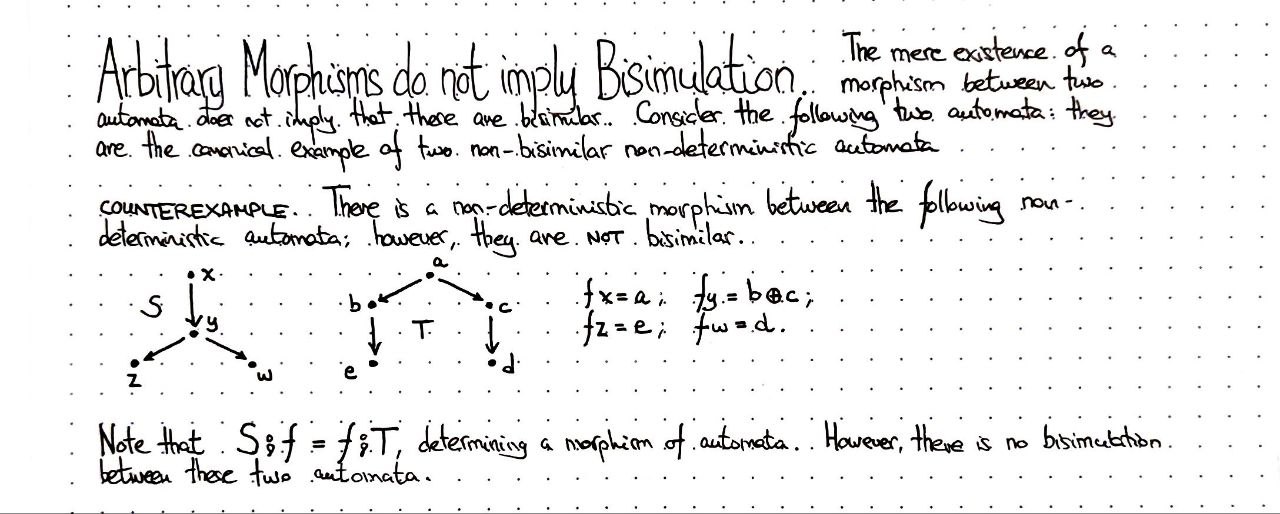 Arbitrary Morphisms do not imply Bisimulation. The mere existence of a
morphism between two
automata does not imply that these are bisimilar. Consider the following two automata: they
are the canonical example of two non-bisimilar non-deterministic automata
COUNTEREXAMPLE. There is a non-deterministic morphism between the following non-
deterministic automata; however, they are NOT bisimilar.
x
S
y
z
w
a
b
c
T
e
d
fx=a; fy=b⊕c;
fz=e; fw=d.
Note that S⨾f = f⨾T, determining a morphism of automata. However, there is no bisimulation
between these two automata.